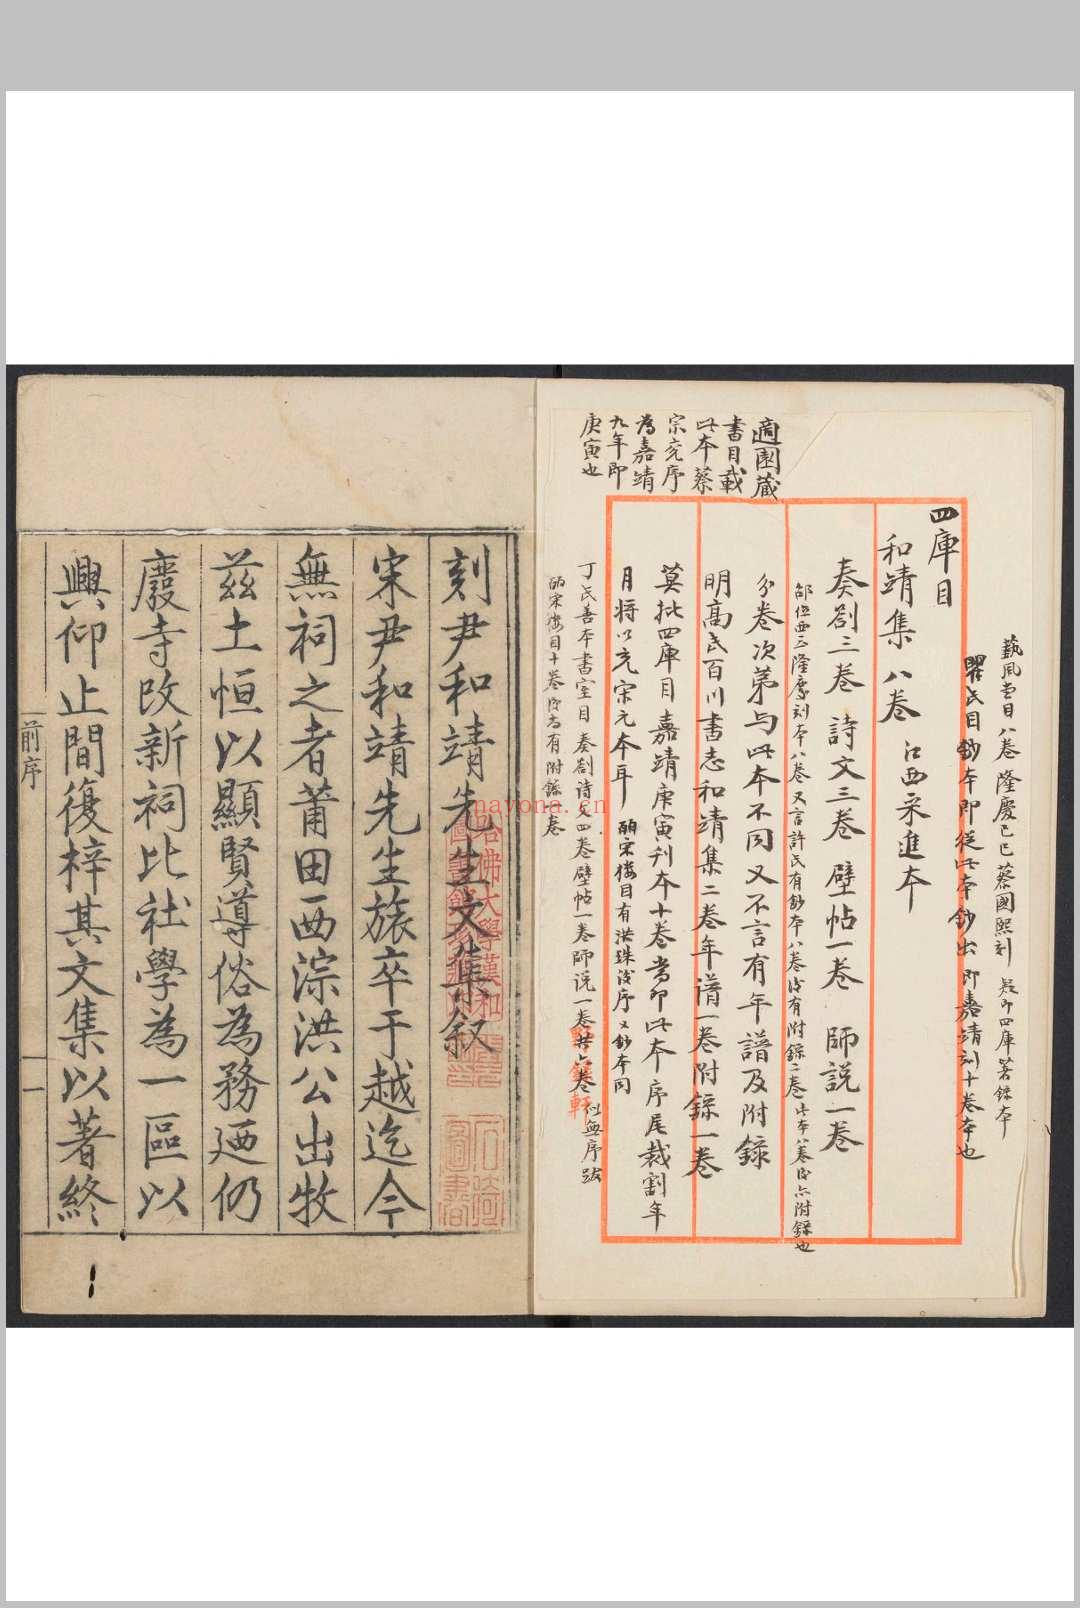 藝風堂目八卷隆慶己巳蔡國熙刻 疑即四庫著錄本
瞿氏目鈔本即從此本鈔出即嘉靖刻十卷本也
四庫目
和靖集八卷 江西采進本
奏劄三卷 詩文三卷 壁帖一卷 師説一卷
邵位西云隆慶刻本八卷又言許氏有鈔本八卷後有附錄二卷此本八卷後亦附錄也
分卷次第与此本不同又不言有年譜及附錄
明高氏百川書志和靖集二卷年譜一卷附錄一卷
莫批四庫目嘉靖庚寅刊本十卷當即此本序尾裁割年
月將以充宋元本耳 皕宋樓目有洪珠後序又鈔本同
適園藏
書目載
此本蔡
宗兗序
為嘉靖
九年即
庚寅也
丁氏善本書室目奏劄詩文四卷壁帖一卷師説一卷共六卷 似無序跋
皕宋樓目十卷後有附錄一卷
刻尹和靖先生文集叙
宋尹和靖先生旅卒于越迄今
無祠之者莆田西淙洪公出牧
兹土恒以顯賢導俗為務廼仍
廢寺改新祠比社學為一區以
興仰止間復梓其文集以著終
前序
一
哈佛大學漢和
圖書館珍藏印
nayona.cn